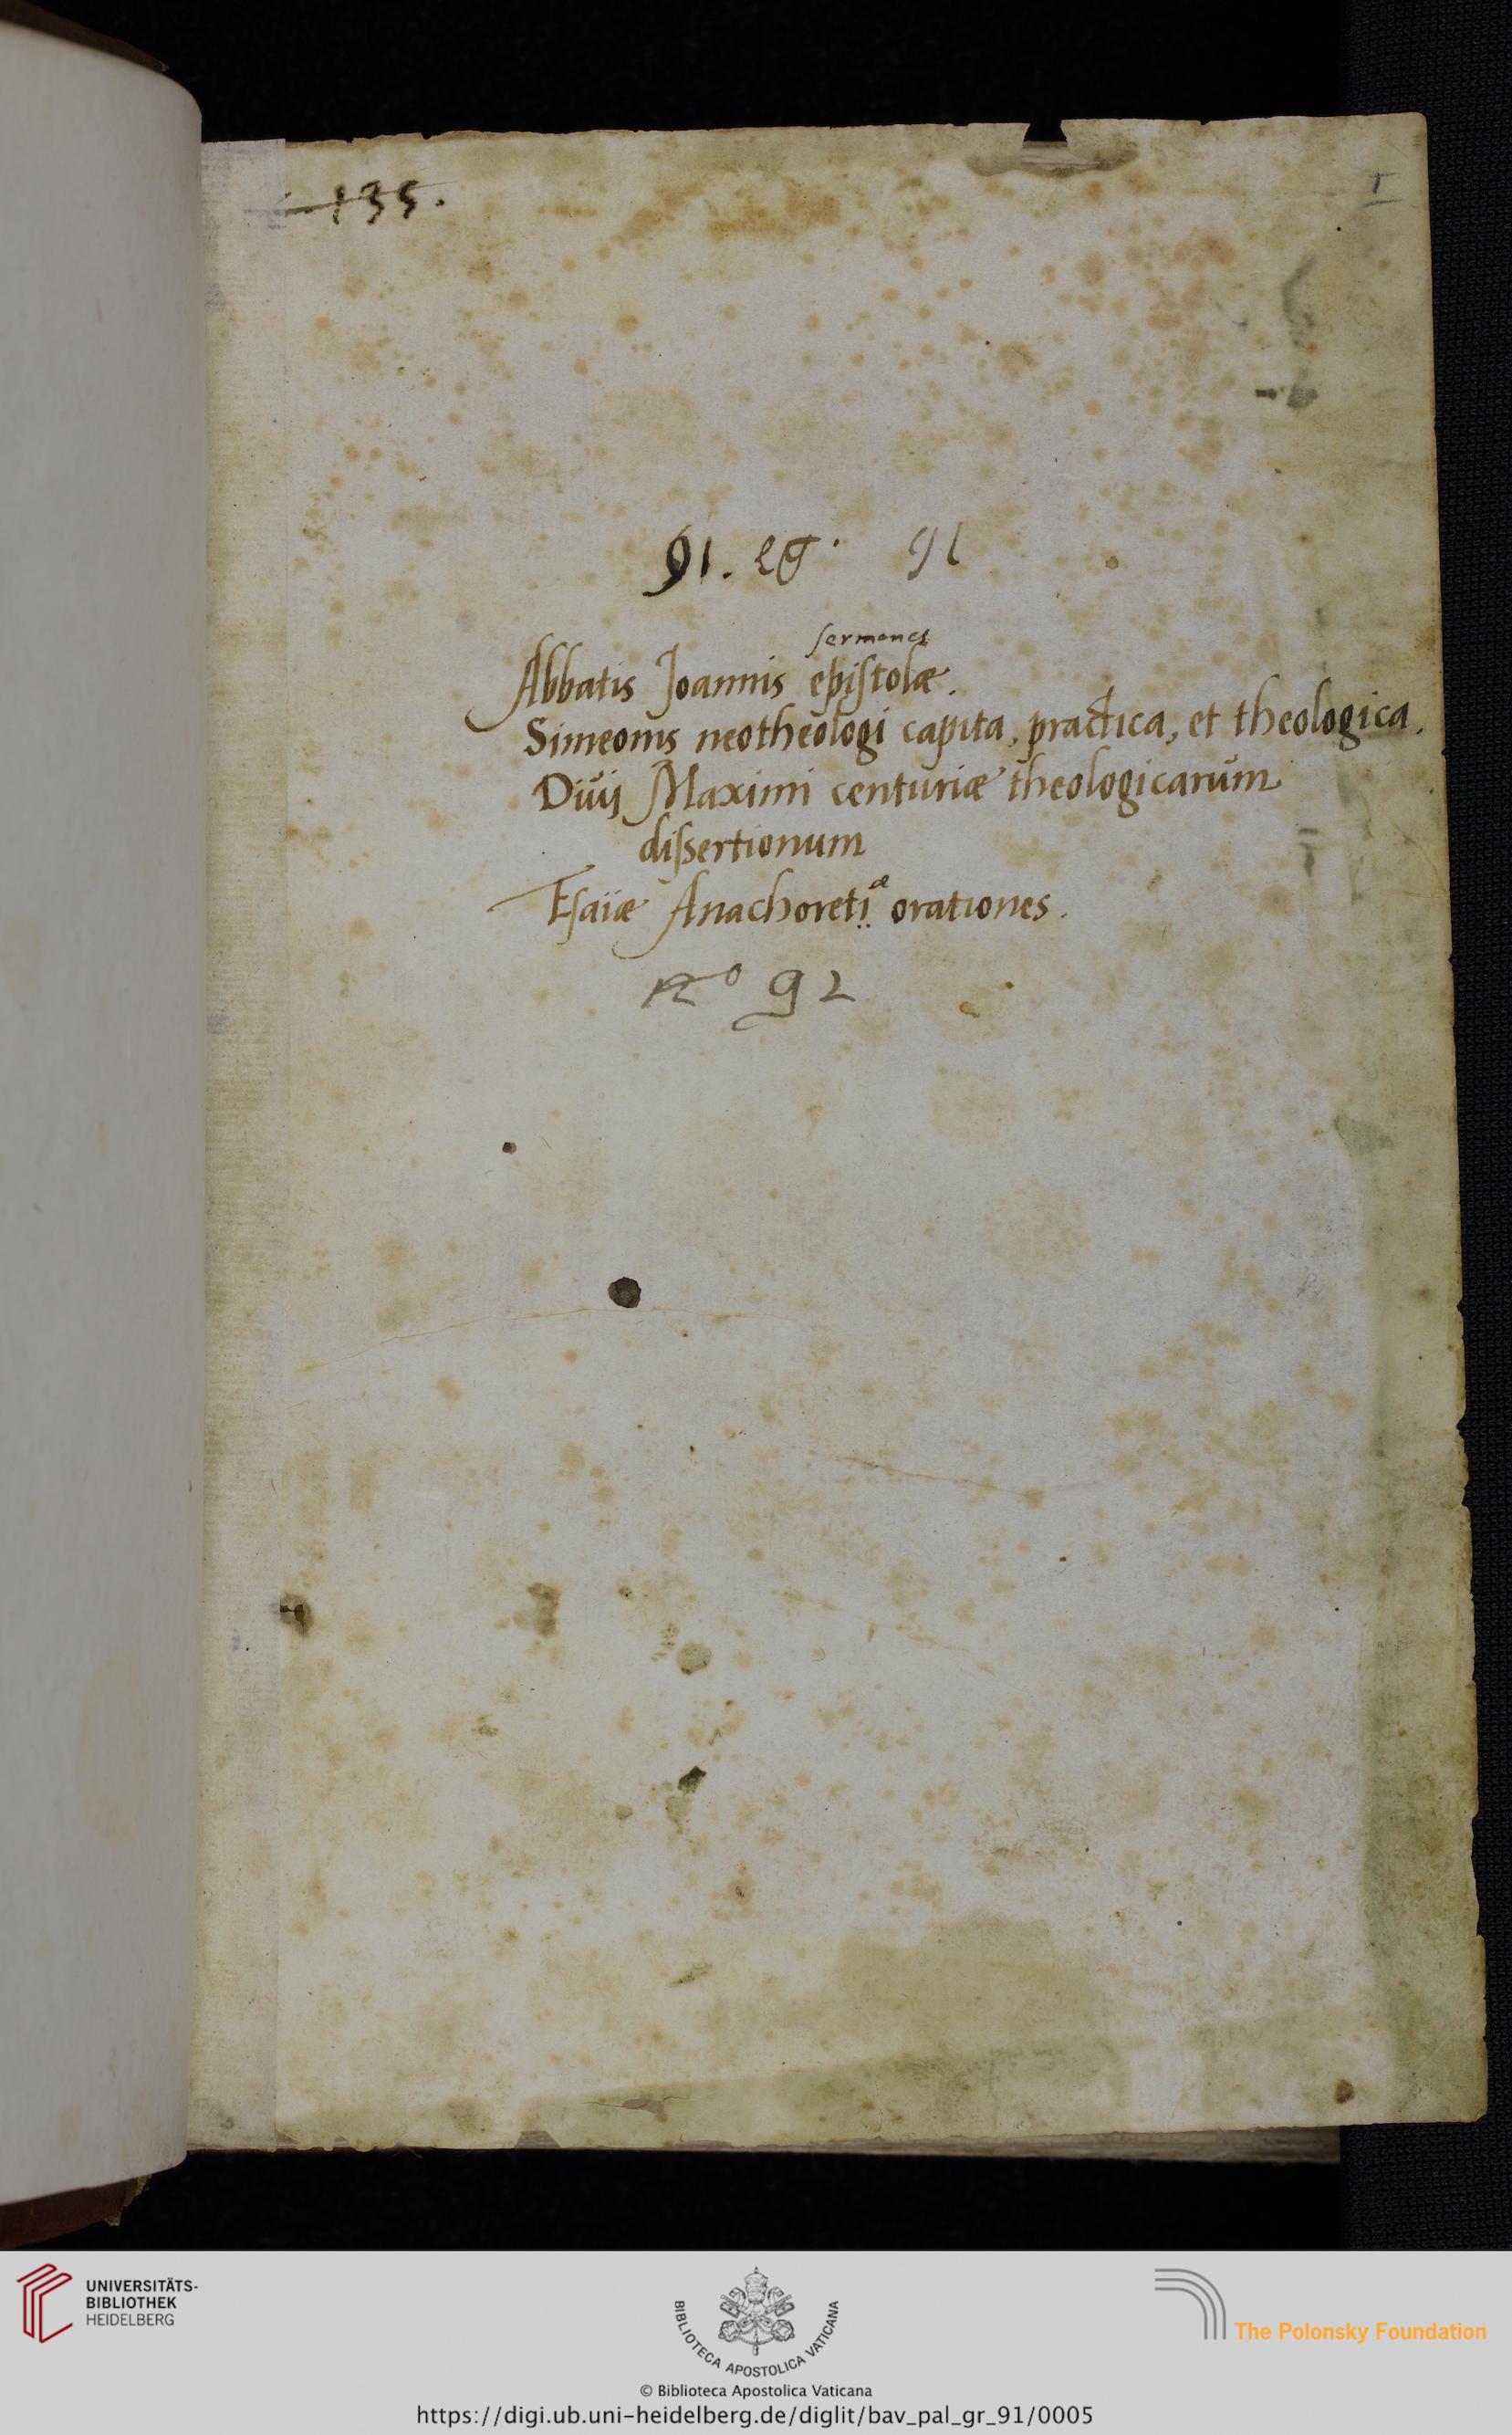 135.
I
91. eg. 91
sermones
Abbatis Joannis epistolæ.
Simeonis neotheologi capita, practica, et theologica.
Diuij Maximi centuriæ theologicarum
dissertionum
Esaïæ Anachoretiæ orationes.
no 92
UNIVERSITÄTS-
BIBLIOTHEK
HEIDELBERG
BIBLIOTECA APOSTOLICA VATICANA
The Polonsky Foundation
© Biblioteca Apostolica Vaticana
https://digi.ub.uni-heidelberg.de/diglit/bav_pal_gr_91/0005